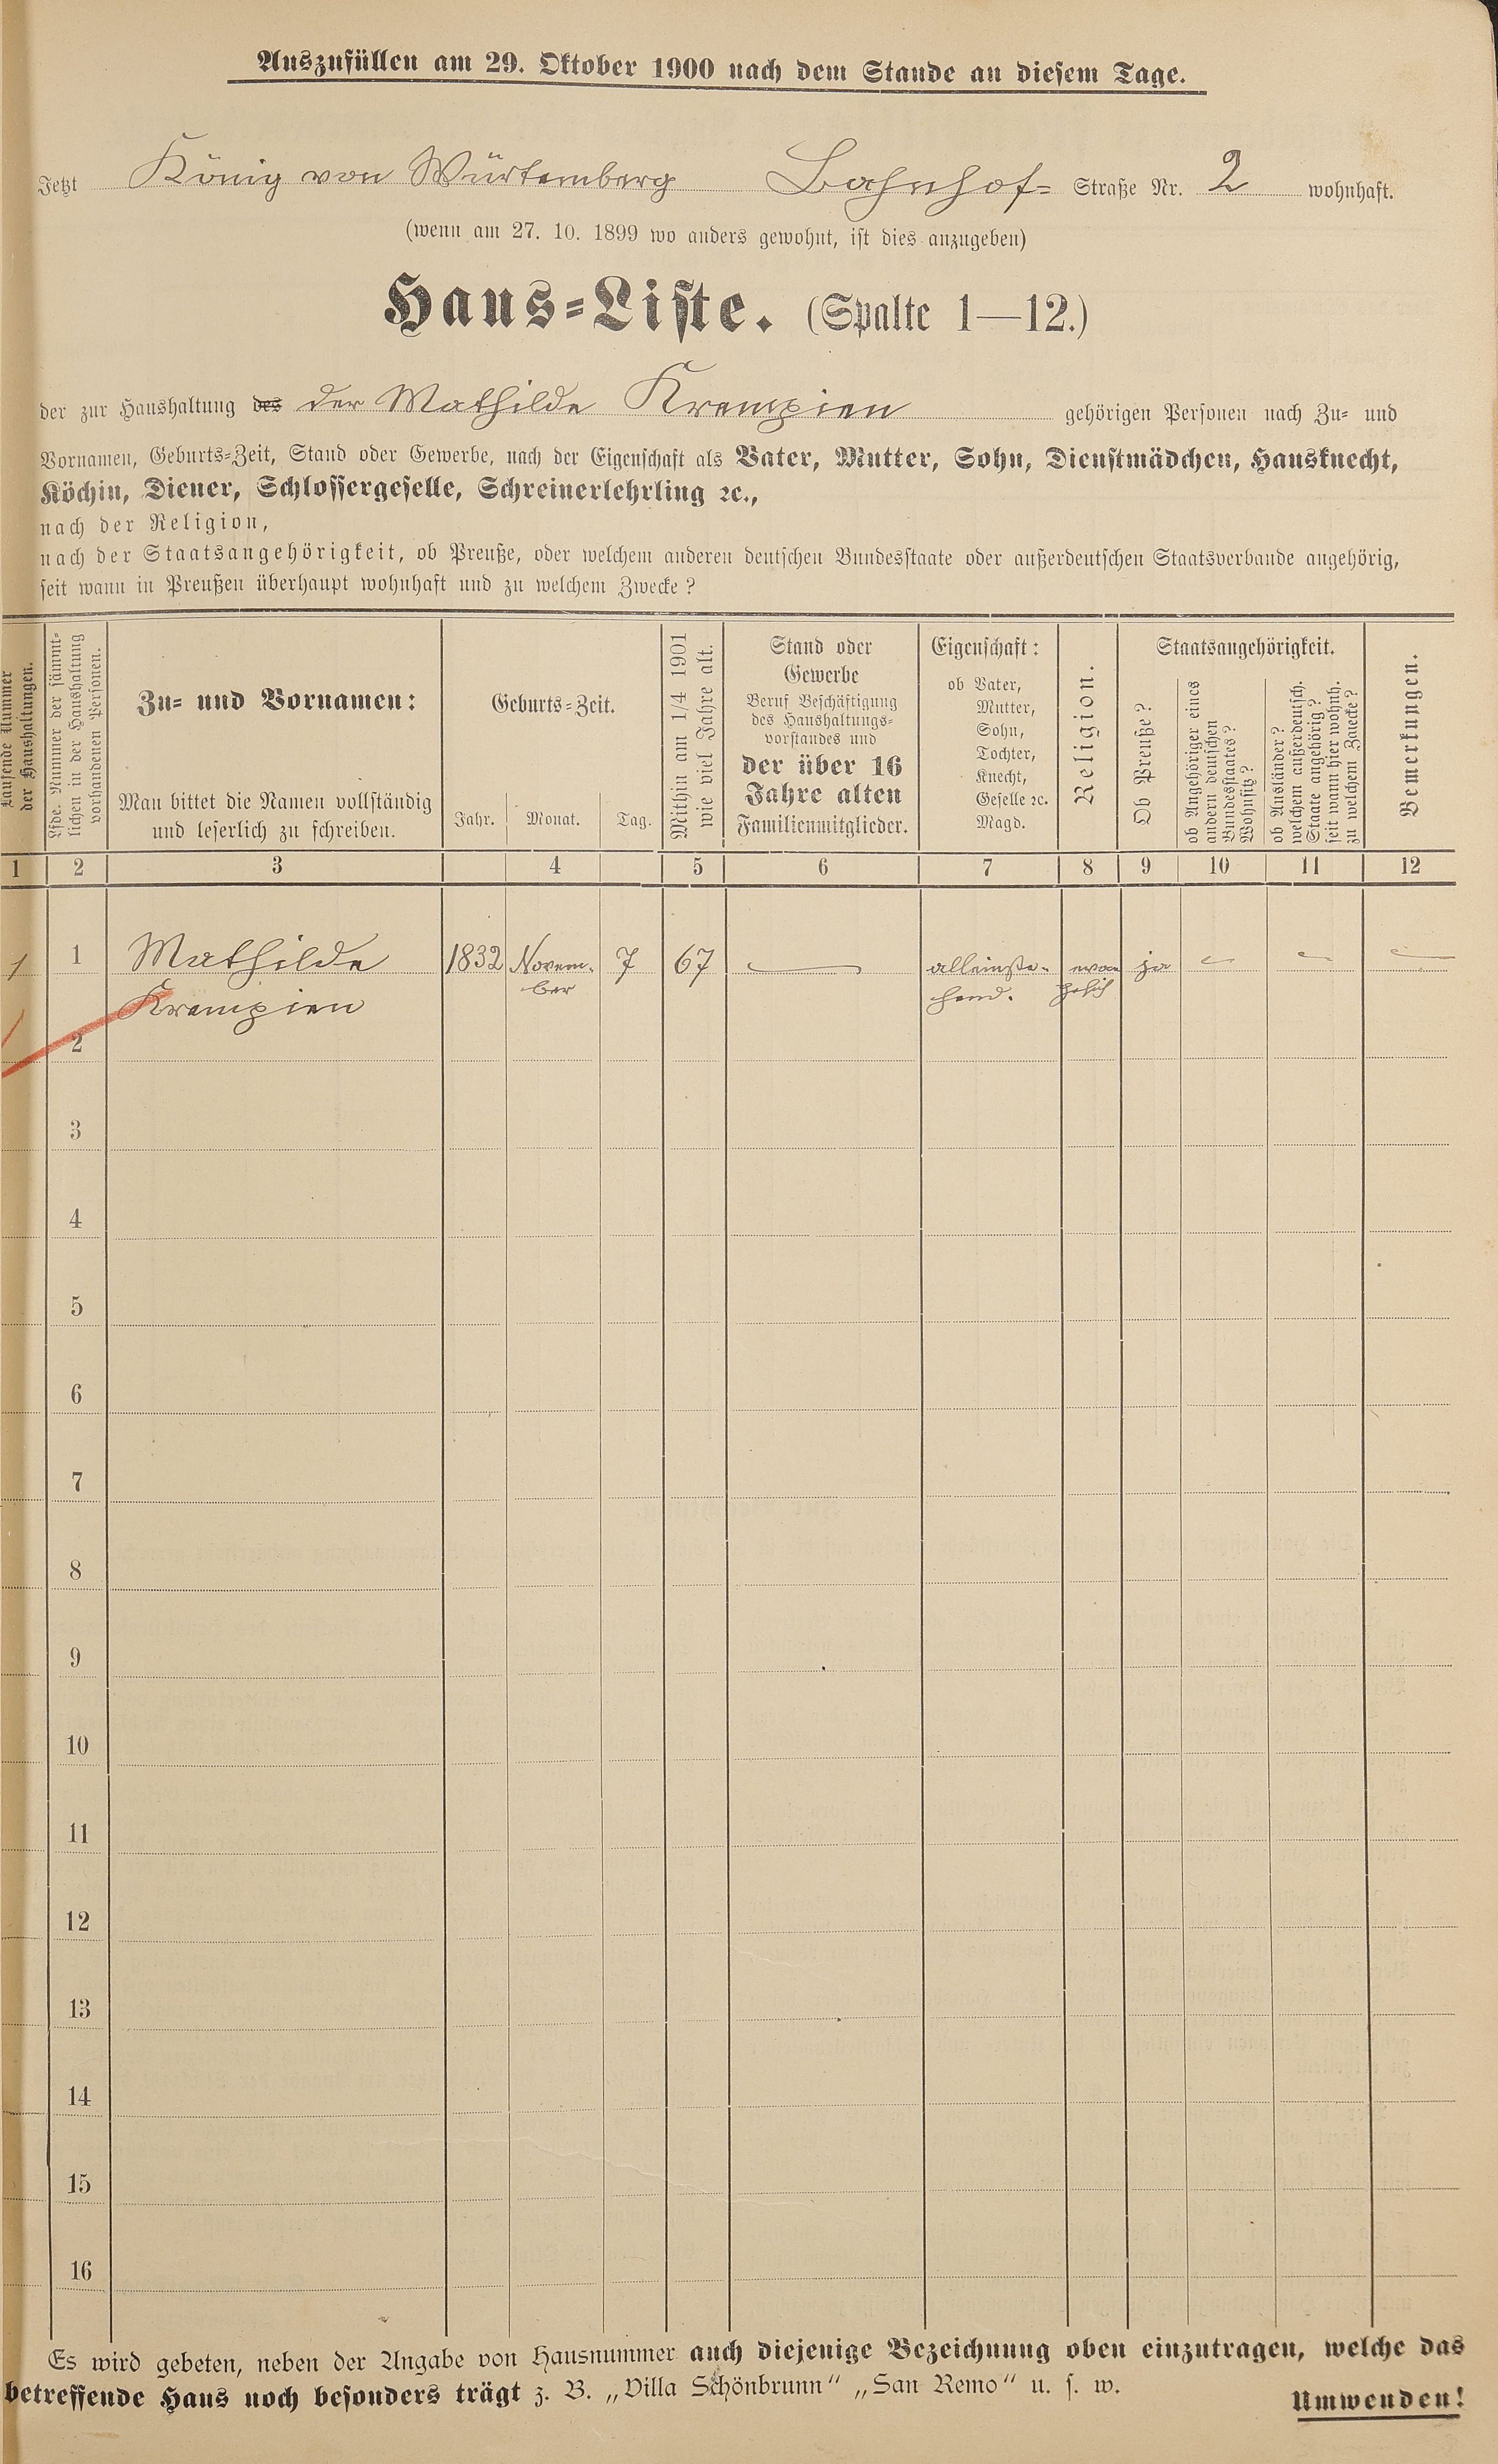 Auszufüllen am 29. Oktober 1900 nach dem Stande an diesem Tage.
Jetzt König von Würtemberg Bahnhof= Straße Nr. 2 wohnhaft.
(wenn am 27. 10. 1899 wo anders gewohnt, ist dies anzugeben)
Haus=Liste. (Spalte 1—12.)
der zur Haushaltung des der Mathilde Krempien gehörigen Personen nach Zu= und
Vornamen, Geburts=Zeit, Stand oder Gewerbe, nach der Eigenschaft als Vater, Mutter, Sohn, Dienstmädchen, Hausknecht,
Köchin, Diener, Schlossergeselle, Schreinerlehrling ꝛc.,
nach der Religion,
nach der Staatsangehörigkeit, ob Preuße, oder welchem anderen deutschen Bundesstaate oder außerdeutschen Staatsverbande angehörig,
seit wann in Preußen überhaupt wohnhaft und zu welchem Zwecke?
Laufende Nummer
der Haushaltungen.
Lfde. Nummer der sämmt=
lichen in der Haushaltung
vorhandenen Personen.
Zu= und Vornamen:
Man bittet die Namen vollständig
und leserlich zu schreiben.
Geburts=Zeit.
Jahr. Monat. Tag.
Mithin am 1/4 1901
wie viel Jahre alt.
Stand oder
Gewerbe
Beruf Beschäftigung
des Haushaltungs=
vorstandes und
der über 16
Jahre alten
Familienmitglieder.
Eigenschaft:
ob Vater,
Mutter,
Sohn,
Tochter,
Knecht,
Geselle ꝛc.
Magd.
Religion.
Staatsangehörigkeit.
Ob Preuße?
ob Angehöriger eines
andern deutschen
Bundesstaates?
Wohnsitz?
ob Ausländer?
welchem außerdeutsch.
Staate angehörig?
seit wann hier wohnh.
zu welchem Zwecke?
Bemerkungen.
1 2 3 4 5 6 7 8 9 10 11 12
1 1 Mathilde 1832 Novem- 7 67 — alleinste- evan ja — — —
Krempien ber hend. gelisch
2
3
4
5
6
7
8
9
10
11
12
13
14
15
16
Es wird gebeten, neben der Angabe von Hausnummer auch diejenige Bezeichnung oben einzutragen, welche das
betreffende Haus noch besonders trägt z. B. „Villa Schönbrunn“ „San Remo“ u. s. w.
Umwenden!